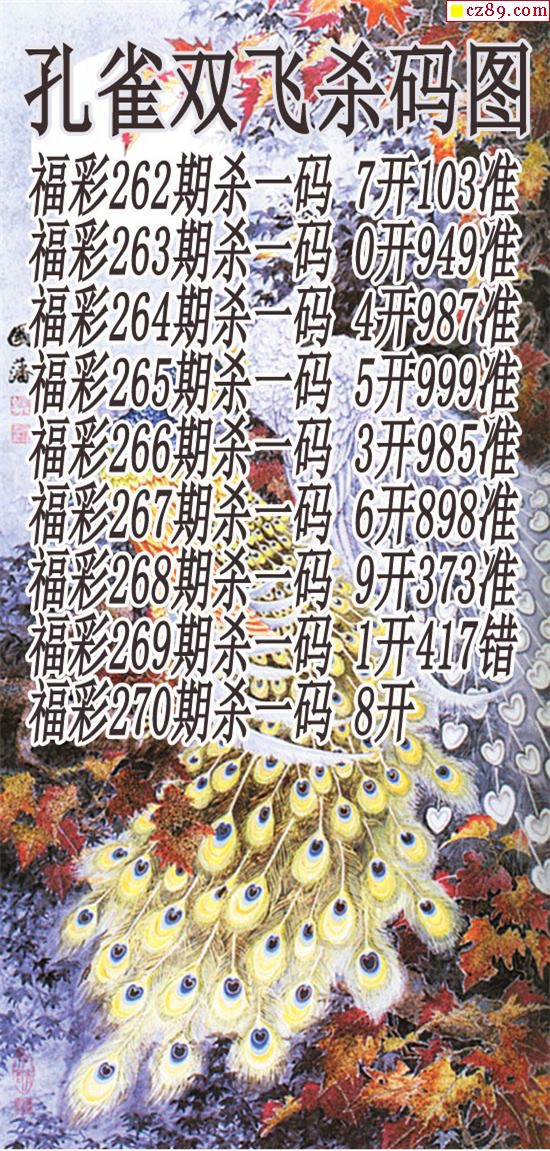 cz89.com
孔雀双飞杀码图
福彩262期杀一码 7开103准
福彩263期杀一码 0开949准
福彩264期杀一码 4开987准
福彩265期杀一码 5开999准
福彩266期杀一码 3开985准
福彩267期杀一码 6开898准
福彩268期杀一码 9开373准
福彩269期杀一码 1开417错
福彩270期杀一码 8开